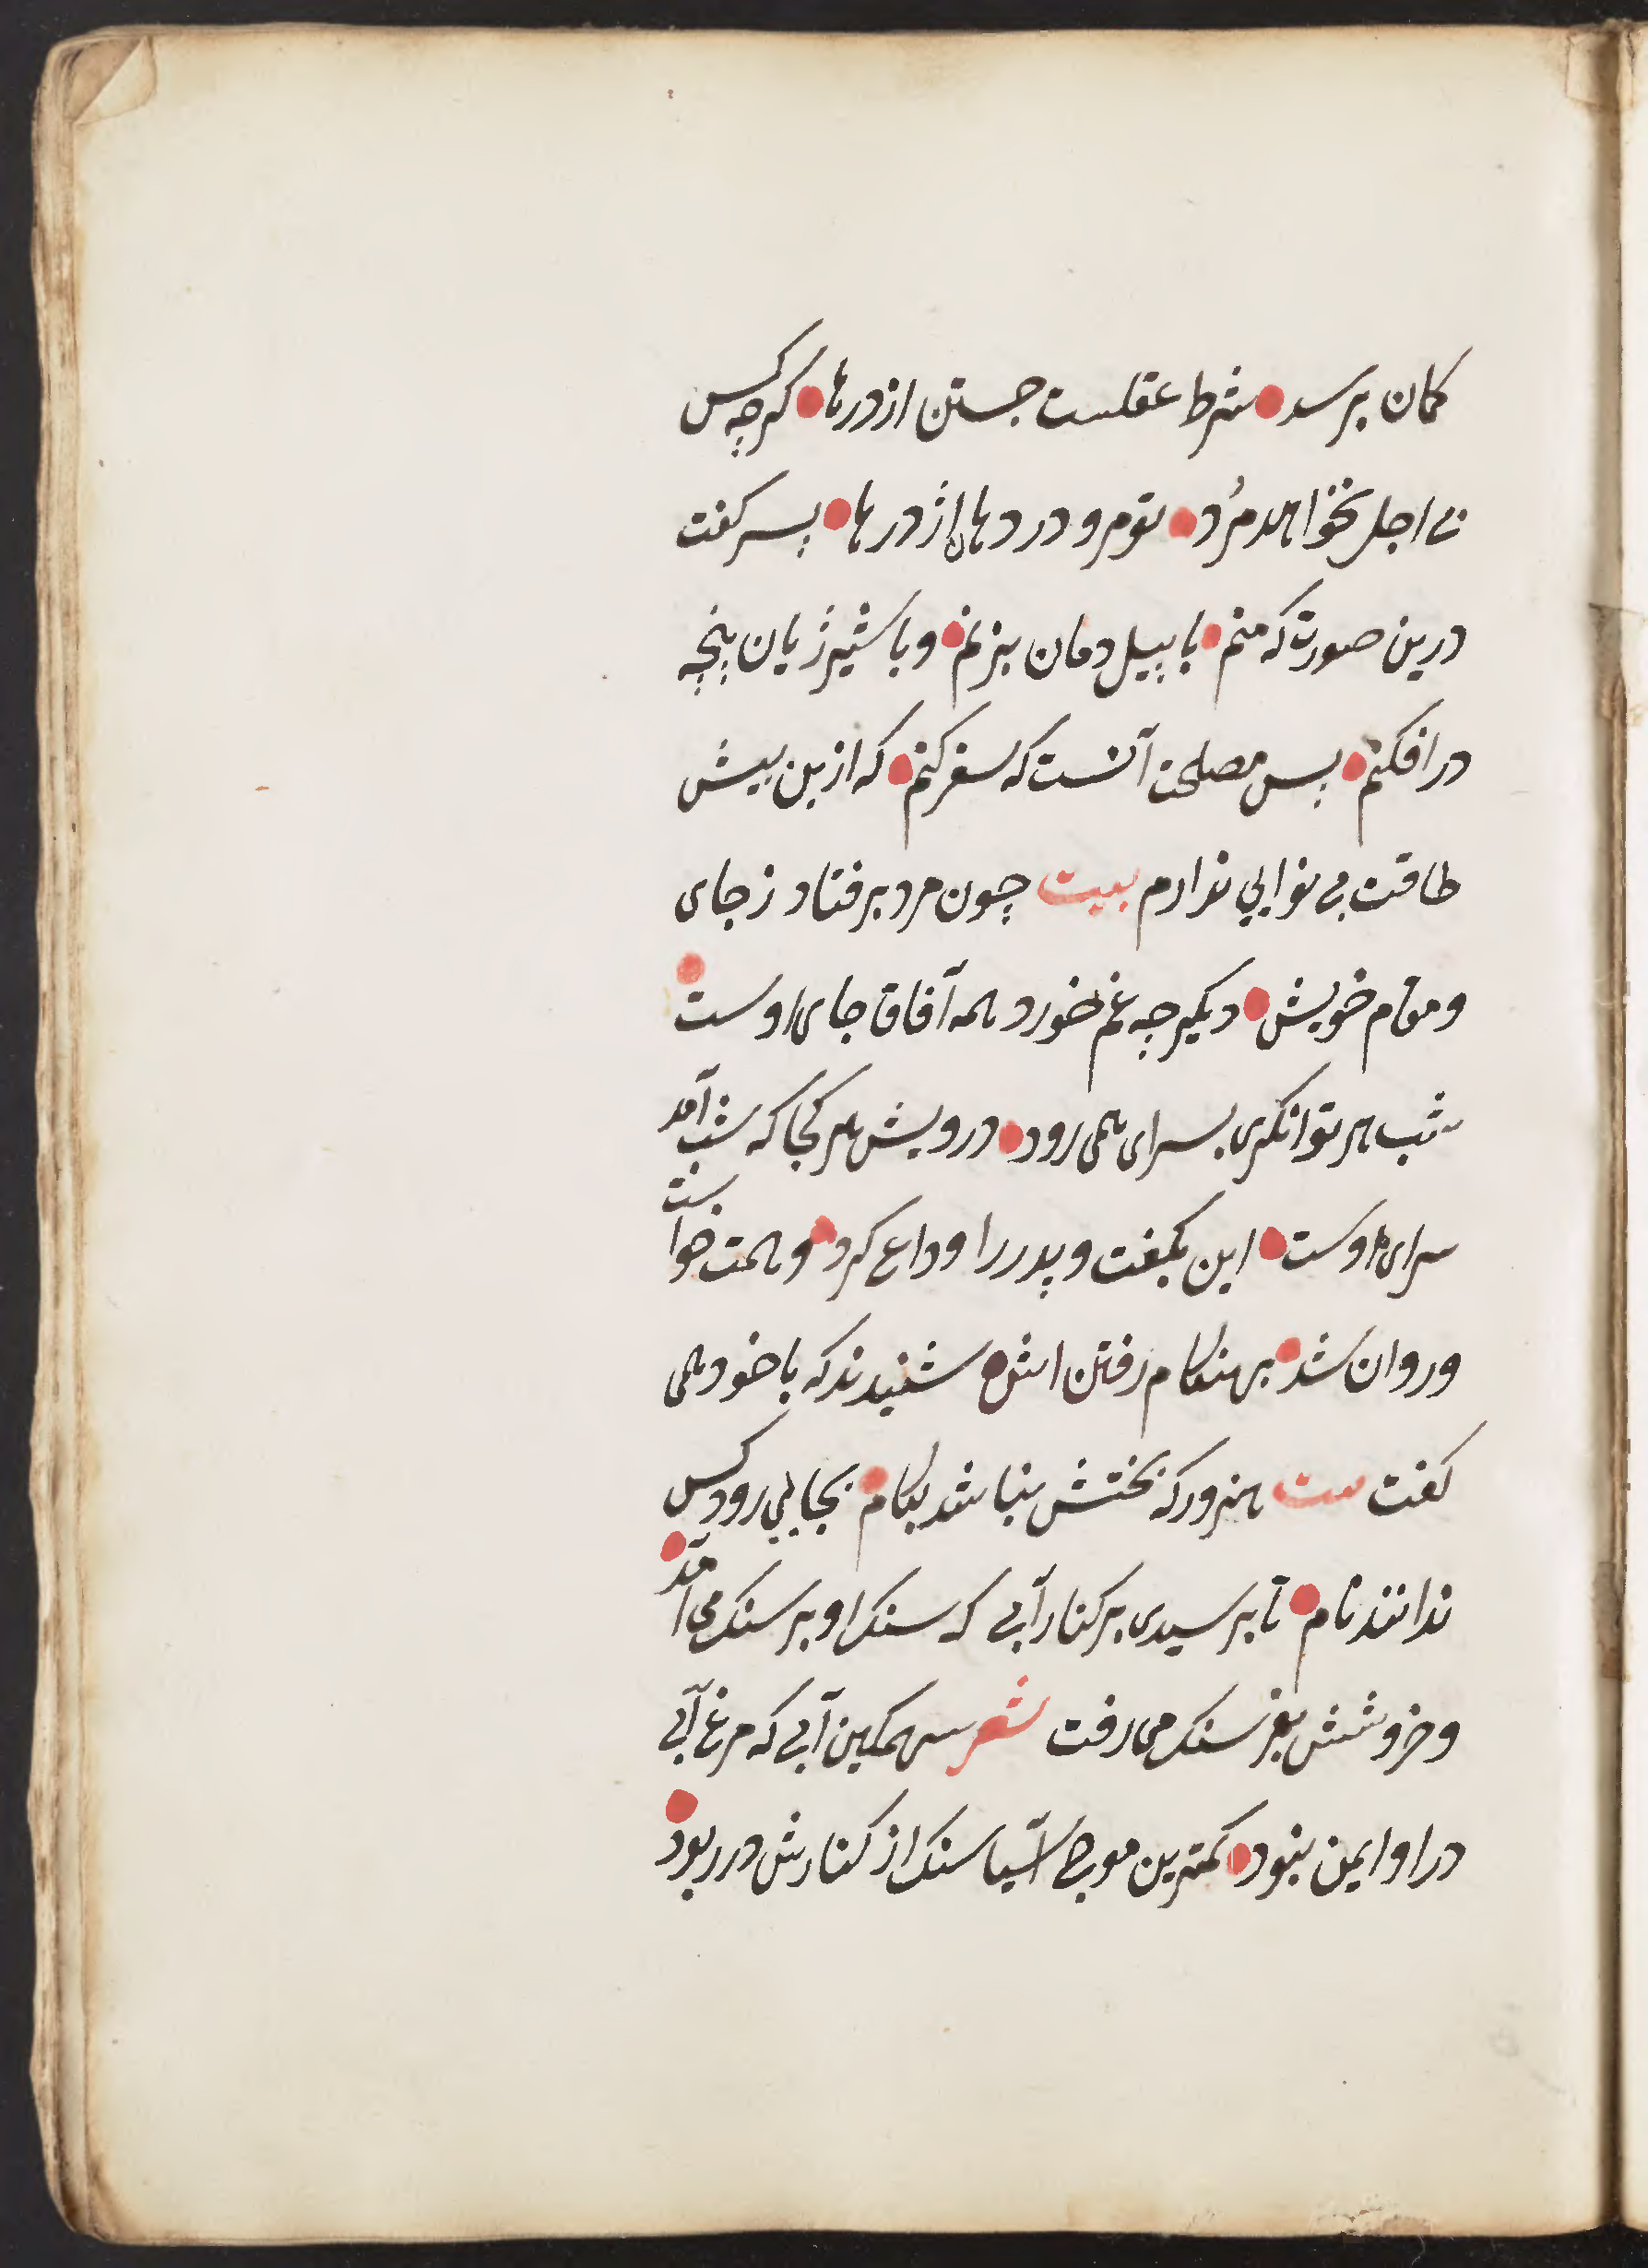 کمان برسد شرط عقلست جستن از درها کرچه کس
بی اجل نخواهد مُرد تو مرو در دهان اژدرها پسر کفت
درین صورت که منم با پیل دمان بزنم و با شیر ژیان پنجه
درافکنم پس مصلحت آنست که سفر کنم که ازین بیش
طاقت بی نوایی ندارم بیت چون مرد برفتاد ز جای
و مقام خویش دیکر چه غم خورد همه آفاق جای اوست
شب هر توانکری بسرای همی رود درویش هر کجا که شب آمد
سرای اوست این بکفت و پدر را وداع کرد و همت خواست
و روان شد بهنکام رفتن اش شنیدند که با خود همی
کفت بیت هنرور که بختش نباشد بکام بجایی رود کس
ندانند نام تا برسیدی بر کنار آبی که سنک او بر سنک می آمد
و خروشش بفرسنک می رفت شعر سهمکین آبی که مرغ آبی
در او ایمن نبود کمترین موج آسیا سنک از کنارش در ربود